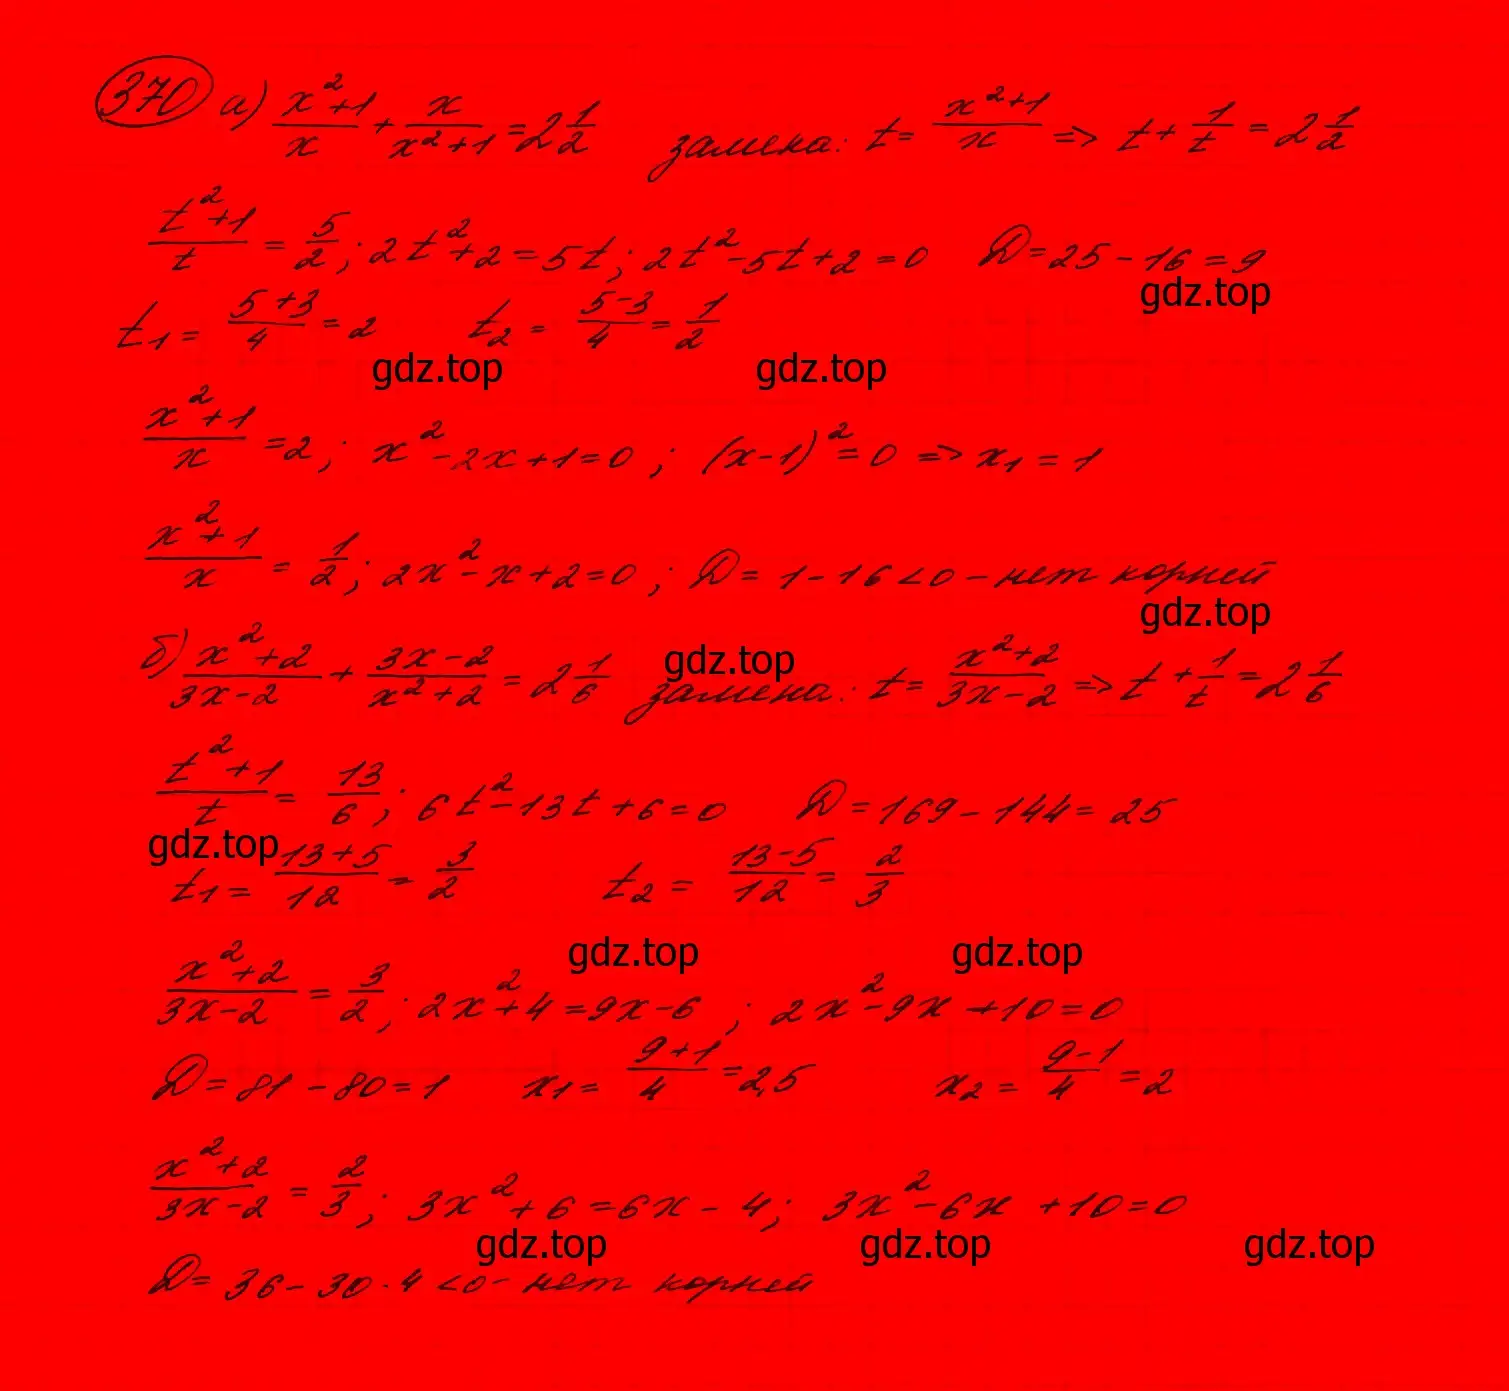 370 а) (x²+1)/x + x/(x²+1) = 2 1/2 замена: t = (x²+1)/x => t + 1/t = 2 1/2
(t²+1)/t = 5/2; 2t²+2=5t; 2t²-5t+2=0 D=25-16=9
gdz.top
t₁ = (5+3)/4 = 2 t₂ = (5-3)/4 = 1/2
gdz.top gdz.top
(x²+1)/x = 2; x²-2x+1=0; (x-1)²=0 => x₁=1
(x²+1)/x = 1/2; 2x²-x+2=0; D=1-16<0 - нет корней
gdz.top
б) (x²+2)/(3x-2) + (3x-2)/(x²+2) = 2 1/6 gdz.top замена: t = (x²+2)/(3x-2) => t + 1/t = 2 1/6
(t²+1)/t = 13/6; 6t²-13t+6=0 D=169-144=25
gdz.top
t₁ = (13+5)/12 = 3/2 t₂ = (13-5)/12 = 2/3
gdz.top gdz.top
(x²+2)/(3x-2) = 3/2; 2x²+4=9x-6; 2x²-9x+10=0
D=81-80=1 x₁ = (9+1)/4 = 2,5 x₂ = (9-1)/4 = 2
(x²+2)/(3x-2) = 2/3; 3x²+6=6x-4; 3x²-6x+10=0
gdz.top gdz.top gdz.top
D=36-30·4<0 - нет корней